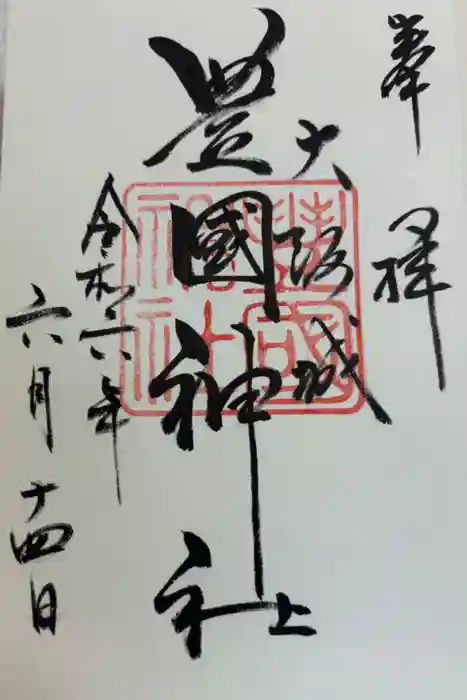 奉拝
大阪城上
豊國神社
豊國神社
令和六年
六月十四日